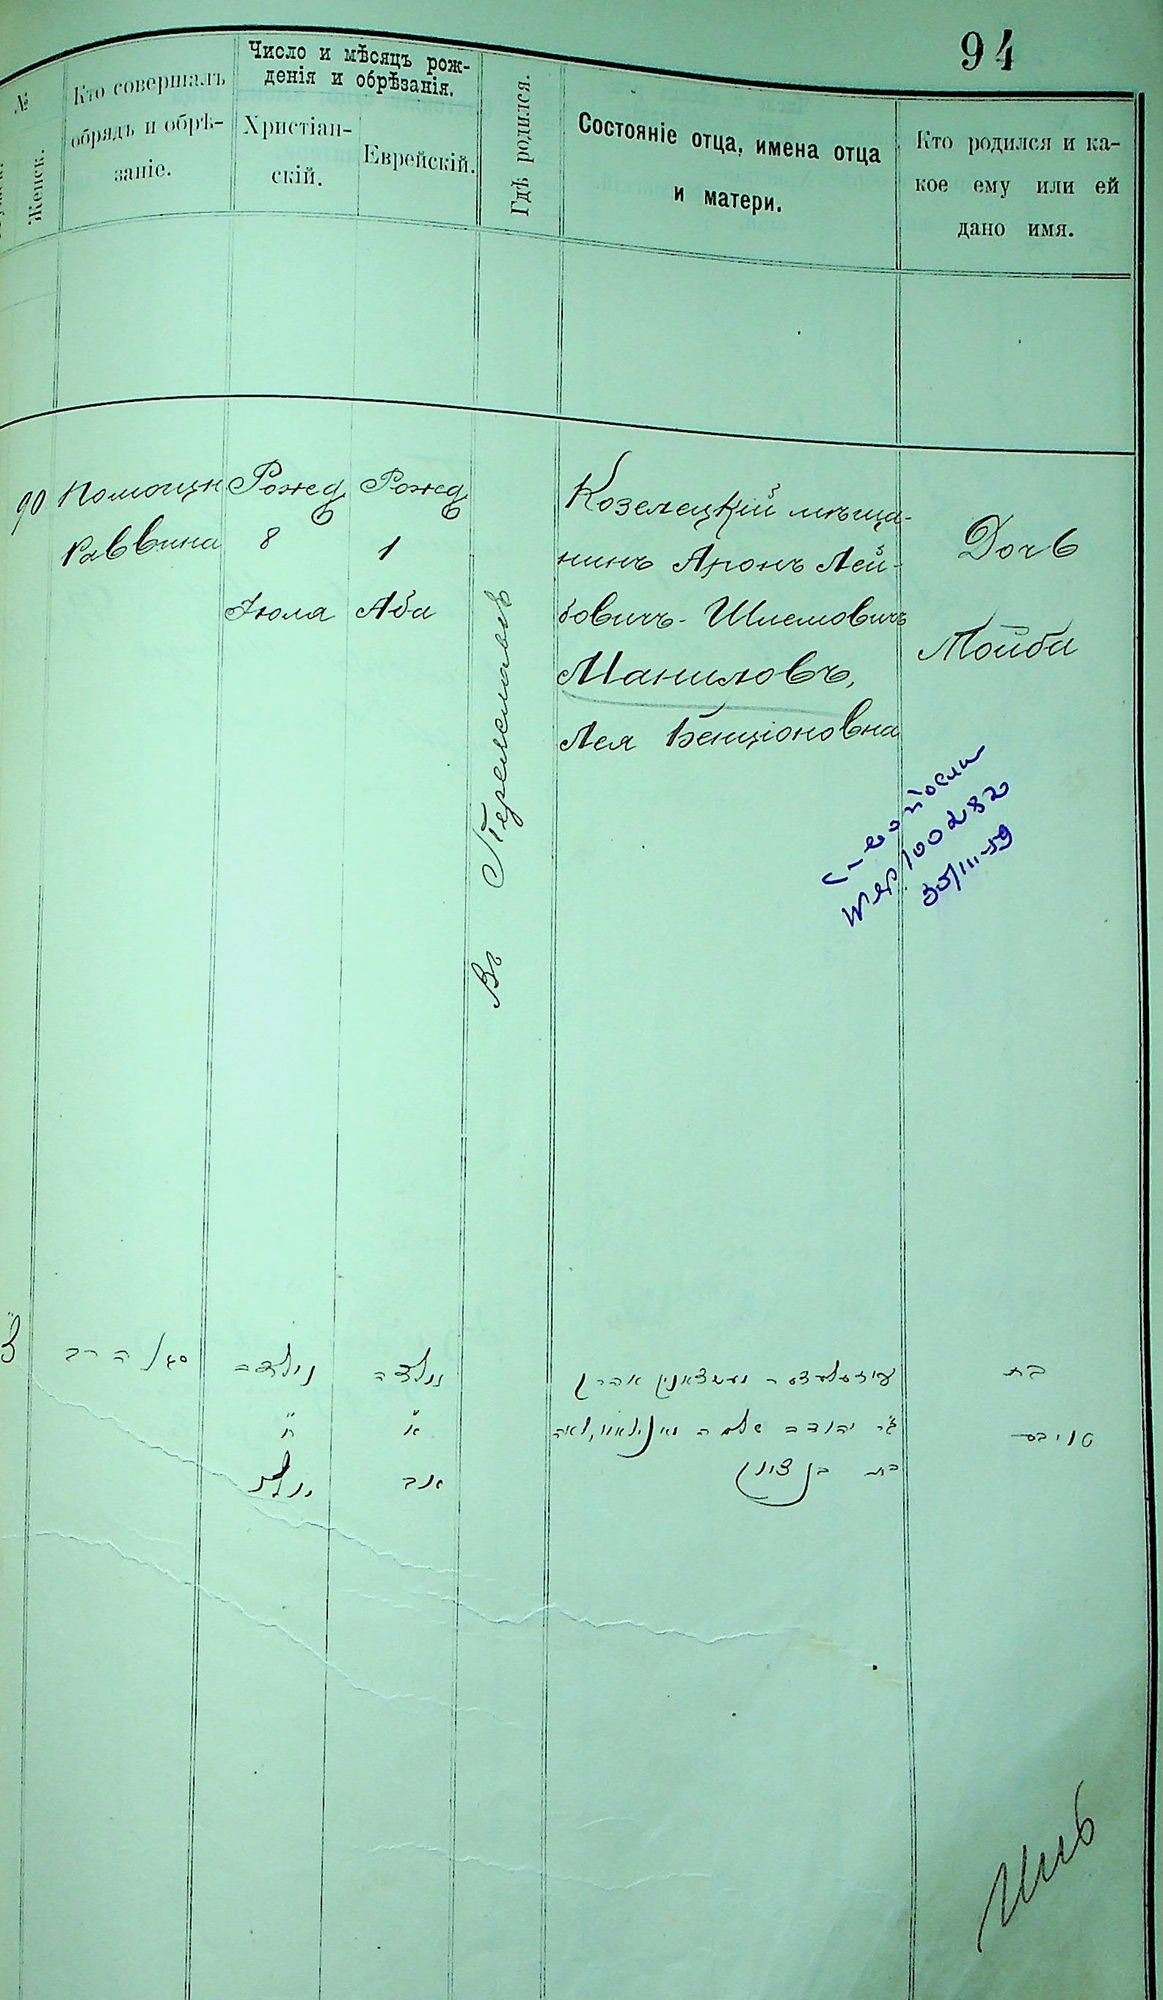 94
№
Женск.
Кто совершалъ
обрядъ и обрѣ-
заніе.
Число и мѣсяцъ рож-
денія и обрѣзанія.
Христіан-
скій.
Еврейскій.
Гдѣ родился.
Состояніе отца, имена отца
и матери.
Кто родился и ка-
кое ему или ей
дано имя.
90
Помощн
Раввина
Рожд
8
Іюля
Рожд
1
Аба
Въ Переяславѣ
Козелецкій мѣща-
нинъ Аронъ Лей-
бовичъ-Шлемовичъ
Маниловъ,
Лея Бенціоновна
Дочь
Тойба
100282
הרב
נולדה
ח
יולי
נולדה
א
אב
אהרן
יהודה שלמה
בת בן ציון
בת
טויבע
Июль